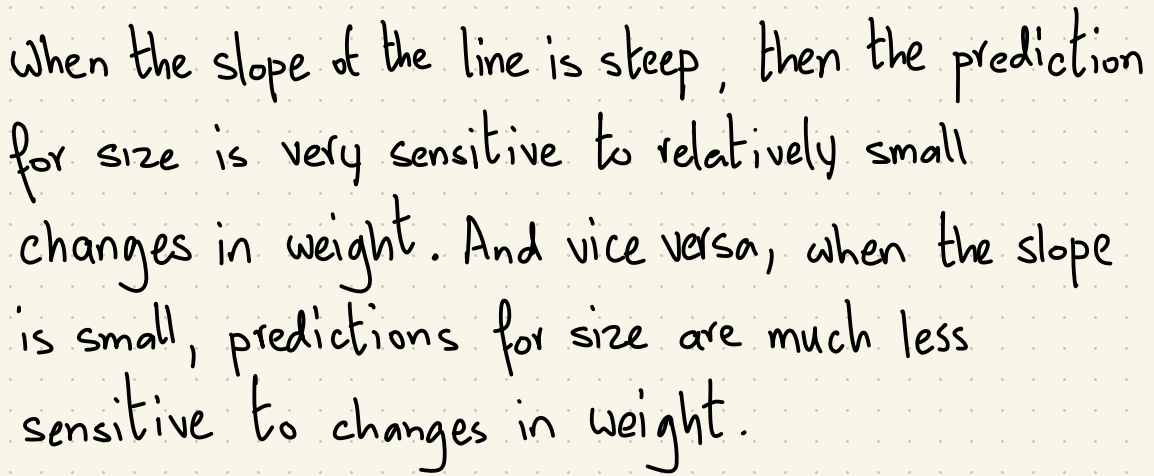 When the slope of the line is steep, then the prediction
for size is very sensitive to relatively small
changes in weight. And vice versa, when the slope
is small, predictions for size are much less
sensitive to changes in weight.